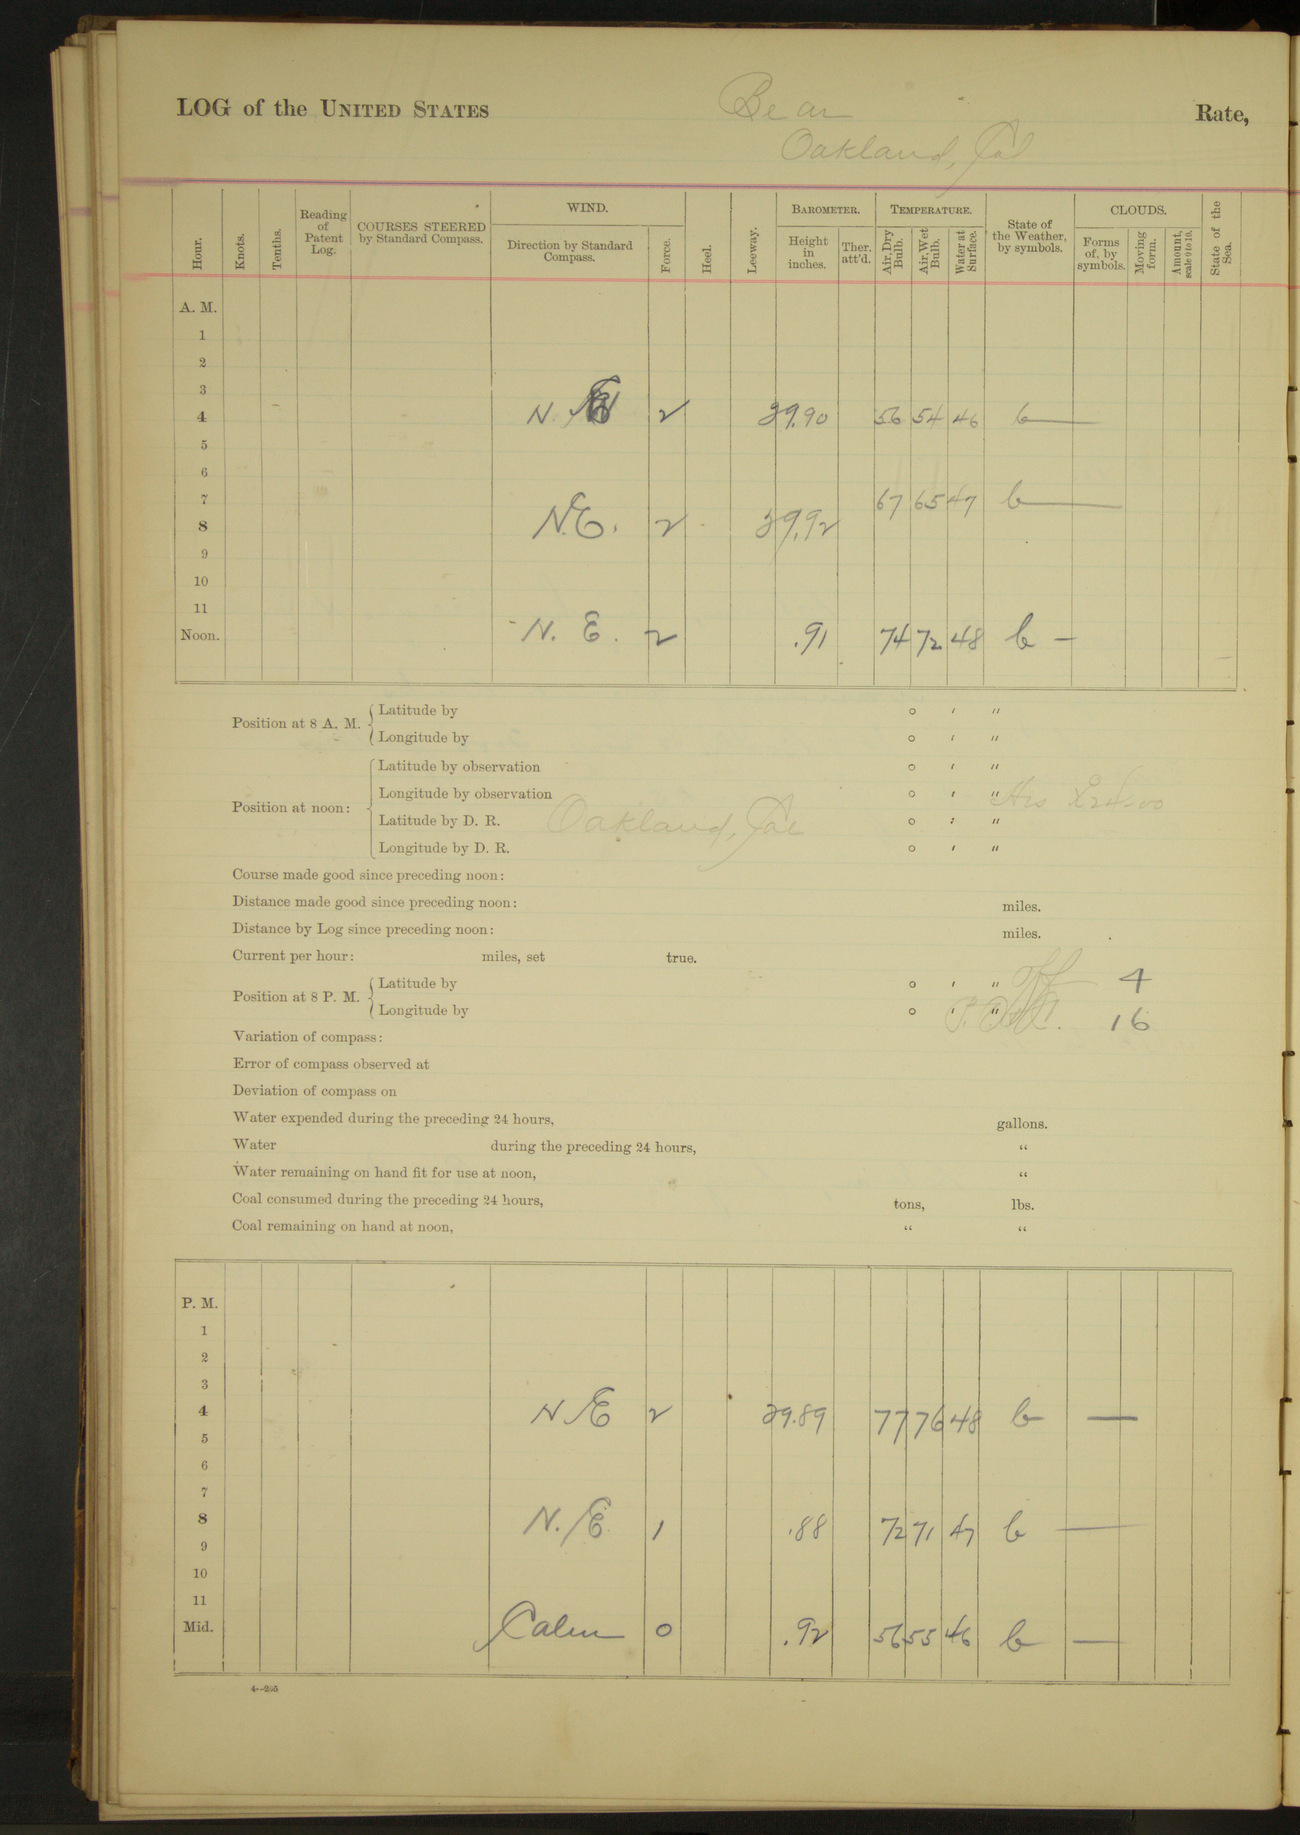 LOG of the UNITED STATES Bear Rate,
Oakland, Cal
Hour. Knots. Tenths. Reading of Patent Log. COURSES STEERED by Standard Compass. WIND. Direction by Standard Compass. Force. Heel. Leeway. BAROMETER. Height in inches. Ther. att'd. TEMPERATURE. Air, Dry Bulb. Air, Wet Bulb. Water at Surface. State of the Weather, by symbols. CLOUDS. Forms of, by symbols. Moving form. Amount, scale 0 to 10. State of the Sea.
A. M.
1
2
3
4 N. 2 29.90 56 54 46 b —
5
6
7 67 65 47 b —
8 N.E. 2 29.92
9
10
11
Noon. N. E. 2 .91 74 72 48 b —
Position at 8 A. M. { Latitude by ° ′ ″
Longitude by ° ′ ″
Position at noon: { Latitude by observation ° ′ ″
Longitude by observation ° ′ ″
Latitude by D. R. Oakland, Cal ° ′ ″
Longitude by D. R. ° ′ ″
Course made good since preceding noon:
Distance made good since preceding noon: miles.
Distance by Log since preceding noon: miles.
Current per hour: miles, set true.
Position at 8 P. M. { Latitude by ° ′ ″ 4
Longitude by ° ′ ″ 16
Variation of compass:
Error of compass observed at
Deviation of compass on
Water expended during the preceding 24 hours, gallons.
Water during the preceding 24 hours, “
Water remaining on hand fit for use at noon, “
Coal consumed during the preceding 24 hours, tons, lbs.
Coal remaining on hand at noon, “ “
P. M.
1
2
3
4 N E 2 29.89 77 76 48 b —
5
6
7
8 N. E 1 .88 72 71 47 b —
9
10
11
Mid. Calm 0 .92 56 55 46 b —
4--205